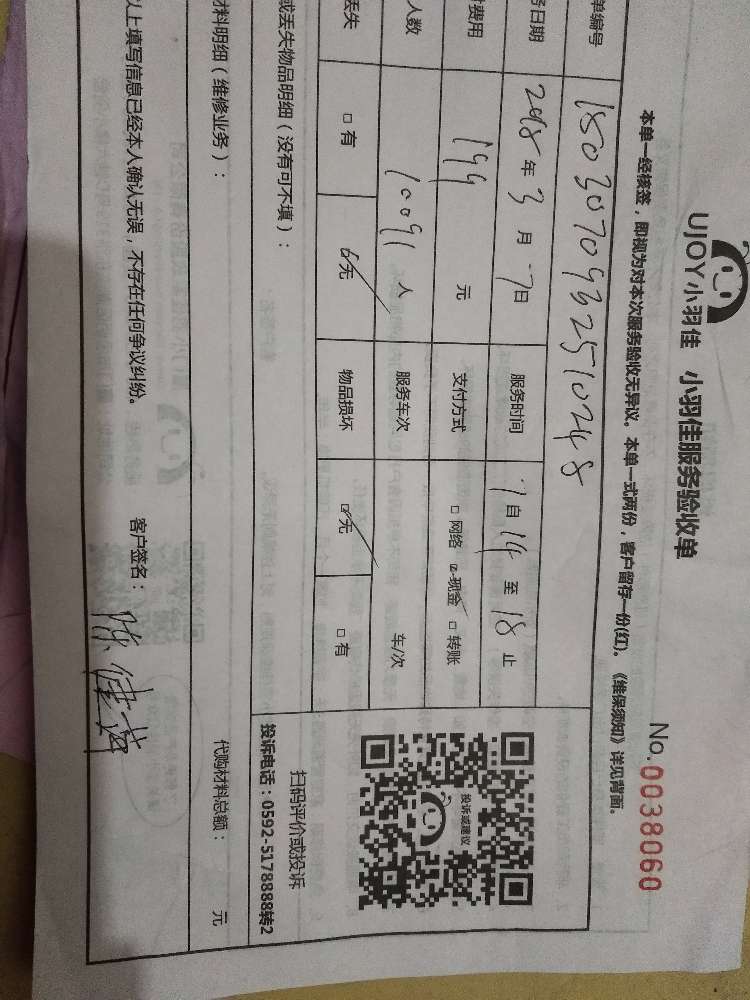 UJOY小羽佳 小羽佳服务验收单
No.0038060
本单一经核签，即视为对本次服务验收无异议。本单一式两份，客户留存一份(红)。《维保须知》详见背面。
单编号 1803070932510248
务日期 2018年3月7日 服务时间 7自14至18止
费用 199元 支付方式 □网络 ☑现金 □转账
人数 10091人 服务车次 车/次
丢失 □有 ☑无 物品损坏 ☑无 □有
投诉或建议
扫码评价或投诉
投诉电话：0592-5178888转2
或丢失物品明细（没有可不填）：
材料明细（维修业务）： 代购材料总额： 元
以上填写信息已经本人确认无误，不存在任何争议纠纷。 客户签名：